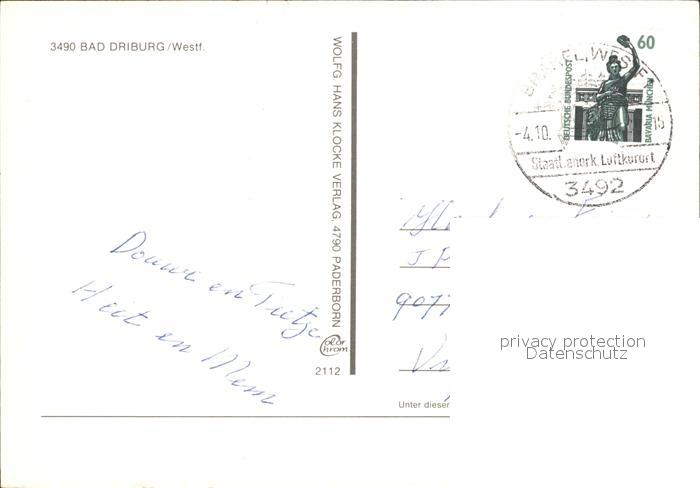 3490 BAD DRIBURG/Westf.
WOLFG HANS KLOCKE VERLAG, 4790 PADERBORN
Color
Chrom
2112
Douwe en Tietze
Heit en Mem
60
DEUTSCHE BUNDESPOST
BAVARIA MÜNCHEN
BRAKEL, WESTF
-4.10.
15
Staatl. anerk. Luftkurort
3492
9077
Unter dieser
privacy protection
Datenschutz